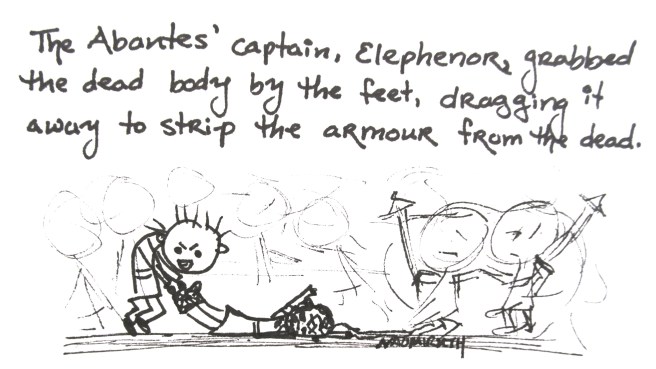 The Abantes' captain, Elephenor, grabbed
the dead body by the feet, dragging it
away to strip the armour from the dead.